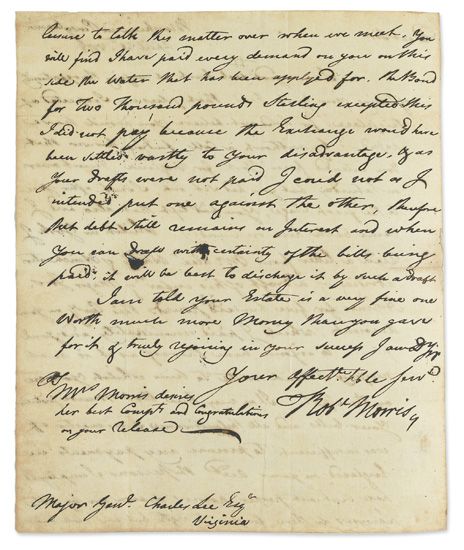 leisure to talk this matter over when we meet. You
will find I have paid every demand on you on this
side the Water that has been applyed for. the Bond
for Two Thousand pounds Sterling excepted this
I did not pay because the Exchange would have
been settled vastly to Your disadvantage. & as
Your drafts were not paid I could not as I
intended put one against the other, therefore
that debt still remains on Interest and when
you can draft with certainty of the bills being
paid. it will be best to discharge it by such a draft
I am told your Estate is a very fine one
worth much more Money than you gave
for it & truly rejoicing in your success I am Dr
Your affect. hble serv.
Mrs Morris desires
Robt Morris
her best Compts and Congratulations
on your release
Major Genl. Charles Lee Esqr
Virginia